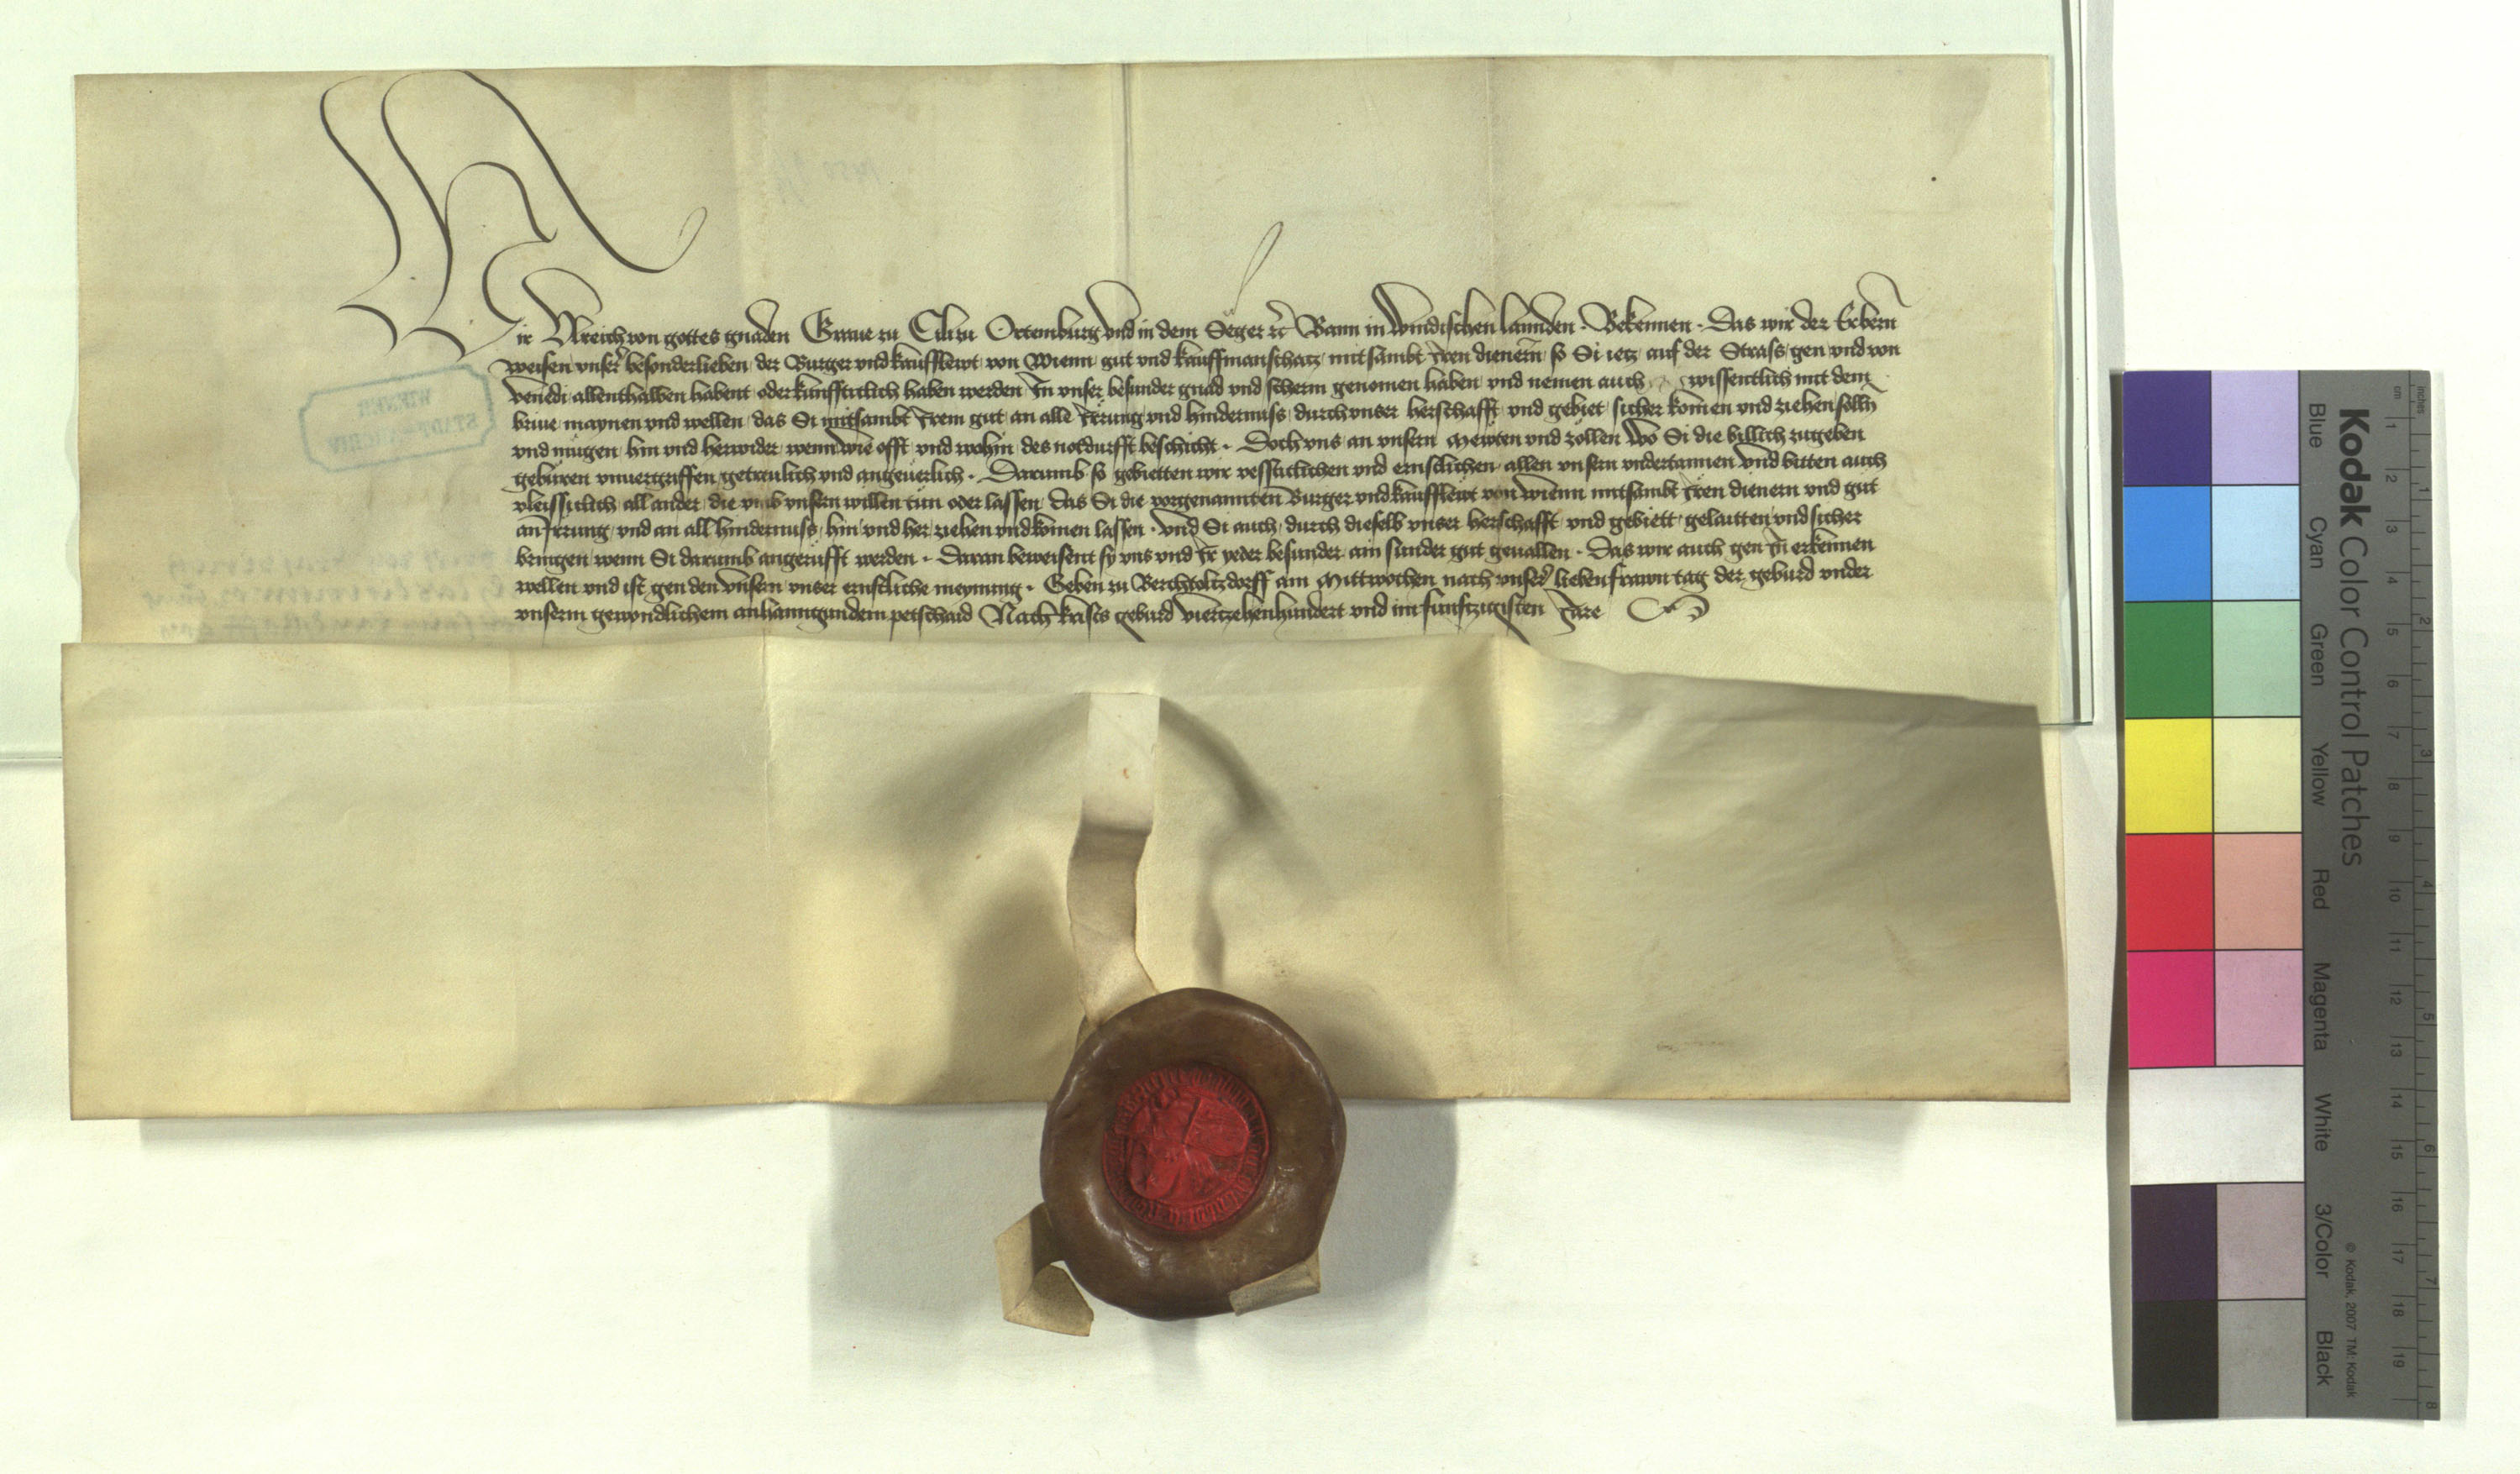 Wir Ulreich von gottes gnaden Graue zu Cilii Ortemburg vnd in dem Seger etc Bann in windischen lannden · Bekennen · Das wir der Erbern
weisen vnser besonderlieben der Burger vnd kauffleut von Wienn gut vnd kauffmanschatz mitsambt iren dienern so Si ietz auf der Strass gen vnd von
Venedi allenthalben habent oder kunffticlich haben werden In vnser besunder gnad vnd scherm genomen haben vnd nemen auch wissentlich mit dem
briue maynen vnd wellen das Si mitsambt irem gut an alle irrung vnd hindernuss durch vnser herschafft vnd gebiet sicher komen vnd ziehen solln
vnd mugen hin vnd herwider wenn wie offt vnd wohin des notdurfft beschicht · Doch vns an vnsern Mewten vnd zollen wo Si die billich zugeben
geburen vnuergriffen getreulich vnd angeuerlich · Darumb so gebietten wir vessticlichen vnd ernstlichen allen vnsern vndertannen vnd bitten auch
vleissiclich all ander die vmb vnsern willen tun oder lassen das Si die vorgenannten Burger vnd kauffleut von Wienn mitsambt iren dienern vnd gut
an irrung vnd an all hindernuss hin vnd her ziehen vnd komen lassen · vnd Si auch durch dieselb vnser herschafft vnd gebiett gelaitten vnd sicher
bringen wenn Si darumb angerufft werden · Daran beweisent sy vns vnd ir yeder besunder ain sunder gut geuallen · Das wir auch gen in erkennen
wellen vnd ist gen den vnsern vnser ernstliche meynung · Geben zu Berchtoltzdorff am Mittwochen nach vnser lieben frawn tag der geburd vnder
vnserm gewondlichem anhanngundem petschaid Nach krists geburd viertzehenhundert vnd im funftzigisten Jare
WIENER
STADT-ARCHIV
Kodak Color Control Patches
© Kodak, 2007 TM: Kodak
Blue Cyan Green Yellow Red Magenta White 3/Color Black
cm 1 2 3 4 5 6 7 8 9 10 11 12 13 14 15 16 17 18 19
inches 1 2 3 4 5 6 7 8